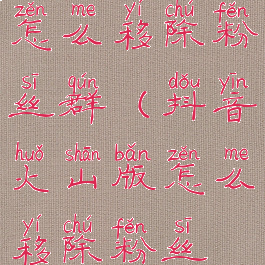 zěn me yí chú fěn
怎么移除粉
sī qún dǒu yīn
丝群（抖音
huǒ shān bǎn zěn me
火山版怎么
yí chú fěn sī
移除粉丝